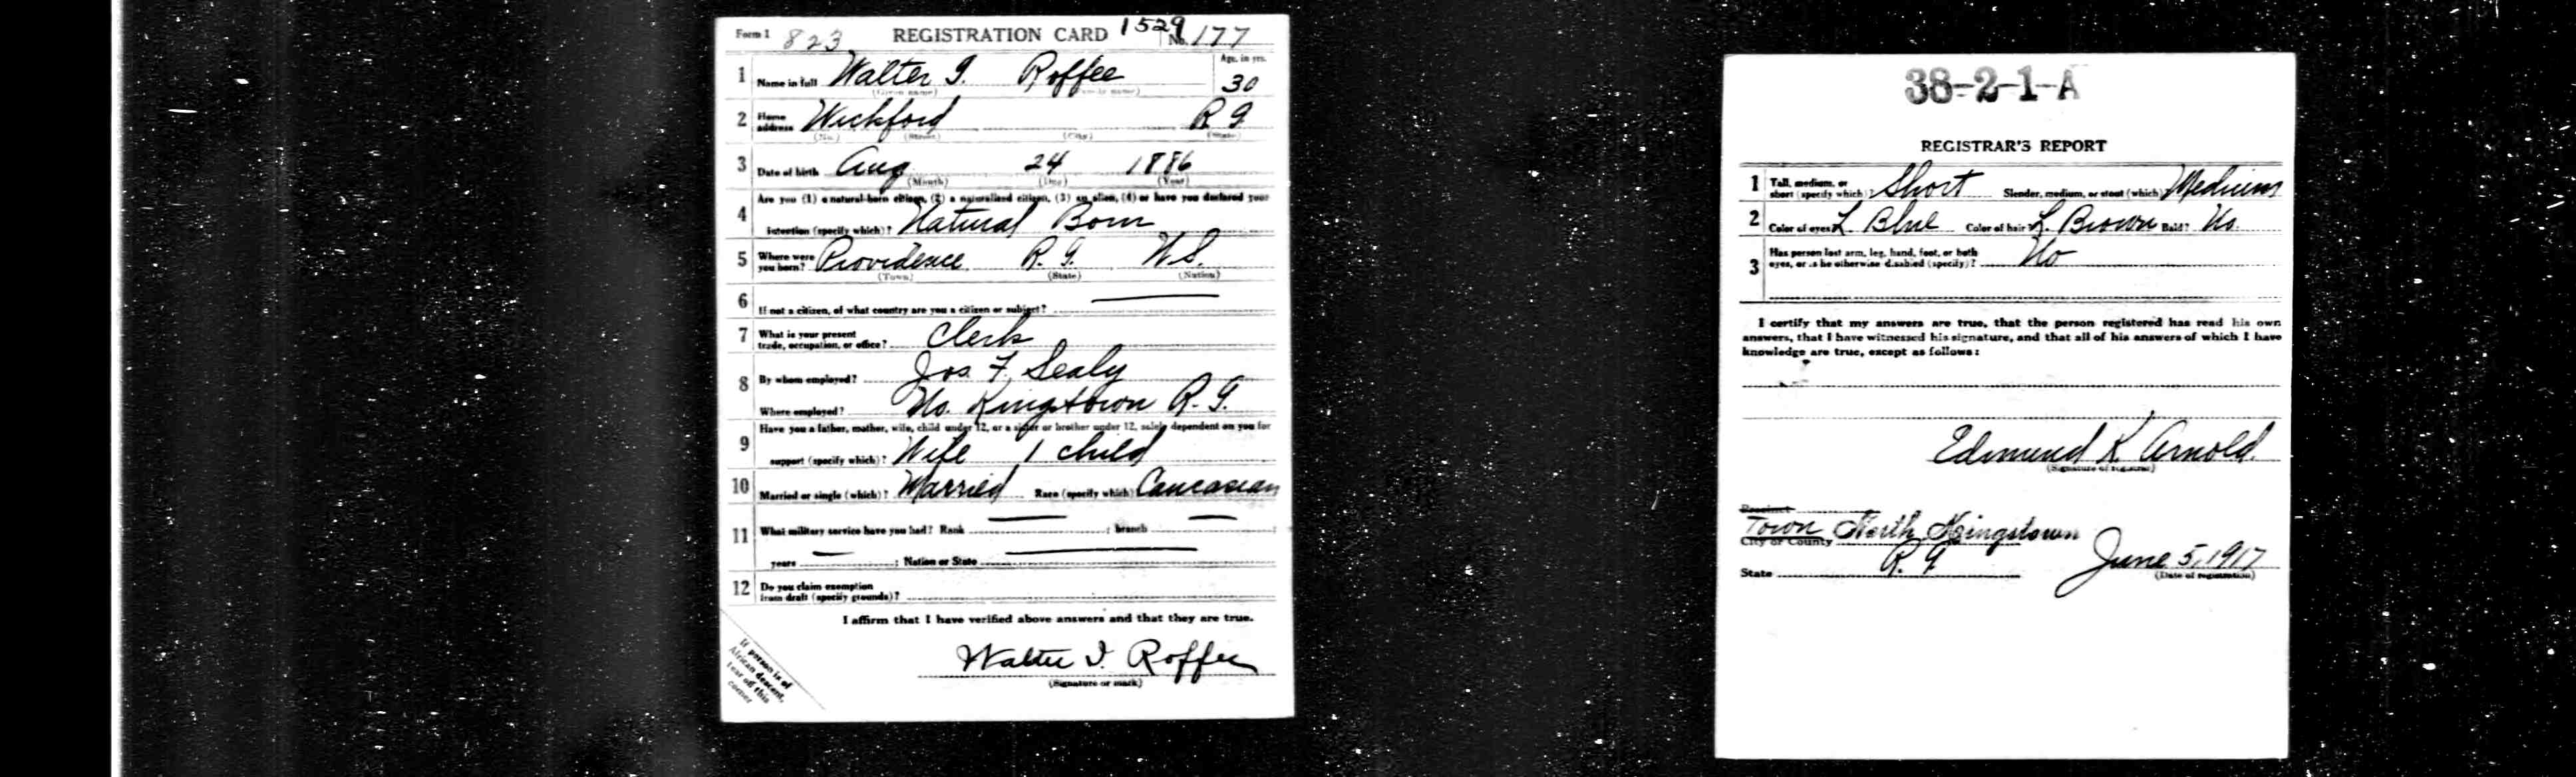 Form 1 823 REGISTRATION CARD 1529 No. 177
1 Name in full Walter I. Roffee Age, in yrs. 30
(Given name) (Family name)
2 Home address Wickford R I
(No.) (Street) (City) (State)
3 Date of birth Aug 24 1886
(Month) (Day) (Year)
4 Are you (1) a natural-born citizen, (2) a naturalized citizen, (3) an alien, (4) or have you declared your
intention (specify which)? Natural Born
5 Where were you born? Providence R. I. U.S.
(Town) (State) (Nation)
6 If not a citizen, of what country are you a citizen or subject?
7 What is your present trade, occupation, or office? Clerk
8 By whom employed? Jos. F. Sealy
Where employed? No. Kingstown R. I.
9 Have you a father, mother, wife, child under 12, or a sister or brother under 12, solely dependent on you for
support (specify which)? Wife 1 child
10 Married or single (which)? Married Race (specify which)? Caucasian
11 What military service have you had? Rank ; branch ;
years ; Nation or State
12 Do you claim exemption
from draft (specify grounds)?
I affirm that I have verified above answers and that they are true.
Walter I. Roffee
(Signature or mark)
If person is of
African descent,
tear off this
corner
38-2-1-A
REGISTRAR'S REPORT
1 Tall, medium, or short (specify which)? Short Slender, medium, or stout (which)? Medium
2 Color of eyes? L. Blue Color of hair? L. Brown Bald? No.
3 Has person lost arm, leg, hand, foot, or both
eyes, or is he otherwise disabled (specify)? No
I certify that my answers are true, that the person registered has read his own
answers, that I have witnessed his signature, and that all of his answers of which I have
knowledge are true, except as follows:
Edmund K. Arnold
(Signature of registrar)
Precinct
Town North Kingstown
City or County
State R. I. June 5, 1917
(Date of registration)